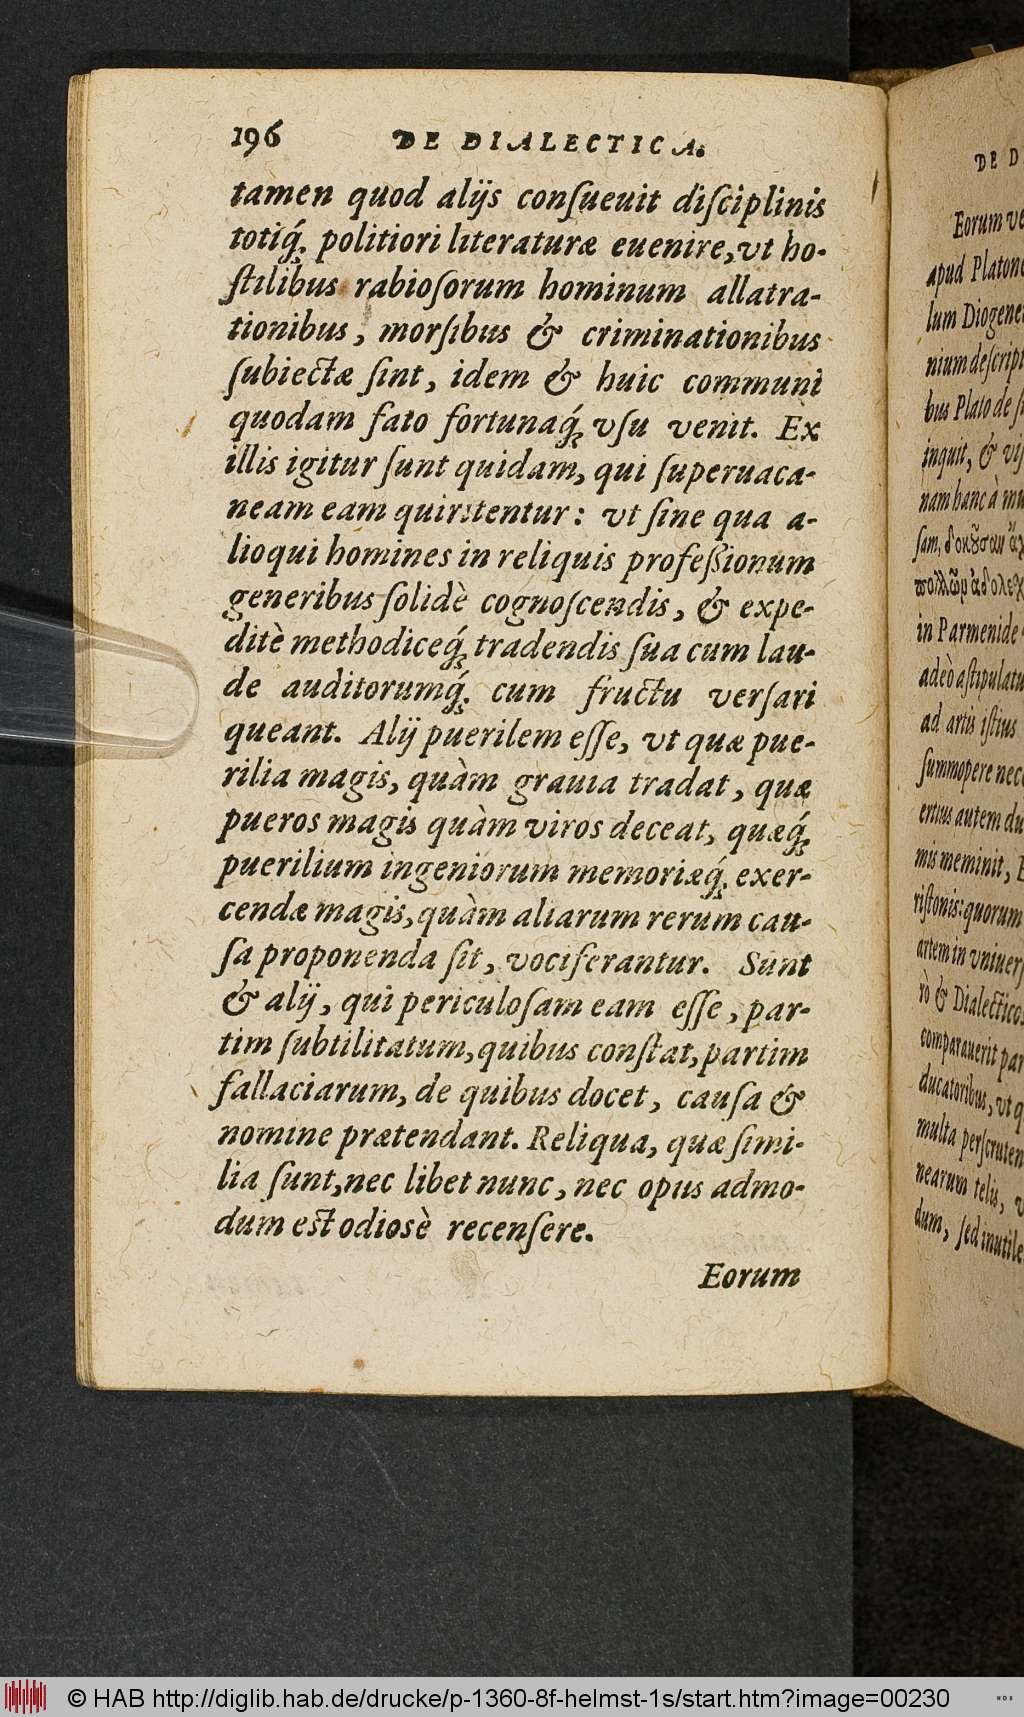 196 DE DIALECTICA.
tamen quod alijs conſueuit diſciplinis
totiq́; politiori literaturæ euenire, vt ho-
ſtilibus rabioſorum hominum allatra-
tionibus, morſibus & criminationibus
ſubiectæ ſint, idem & huic communi
quodam fato fortunaq́; vſu venit. Ex
illis igitur ſunt quidam, qui ſuperuaca-
neam eam quiritentur: vt ſine qua a-
lioqui homines in reliquis profeßionum
generibus ſolidè cognoſcendis, & expe-
ditè methodiceq́; tradendis ſua cum lau-
de auditorumq́; cum fructu verſari
queant. Alij puerilem eſſe, vt quæ pue-
rilia magis, quàm grauia tradat, quæ
pueros magis quàm viros deceat, quæq́;
puerilium ingeniorum memoriæq́; exer-
cendæ magis, quàm aliarum rerum cau-
ſa proponenda ſit, vociferantur. Sunt
& alij, qui periculoſam eam eſſe, par-
tim ſubtilitatum, quibus conſtat, partim
fallaciarum, de quibus docet, cauſa &
nomine prætendant. Reliqua, quæ ſimi-
lia ſunt, nec libet nunc, nec opus admo-
dum eſt odiosè recenſere.
Eorum
DE D
Eorum ve
apud Platone
lum Diogene
nium deſcript
bus Plato de
inquit, & viſ
nam hanc à mu
ſam,
in Parmenide
adeò aſtipulatu
ad artis iſtius
ſummopere nec
ertius autem du
mis meminit, E
riſtonis: quorum
artem in vniuerſ
rò & Dialecticos
comparauerit par
ducatoribus, vt q
multa perſcruten
nearum telis, v
dum, ſed inutile
© HAB http://diglib.hab.de/drucke/p-1360-8f-helmst-1s/start.htm?image=00230